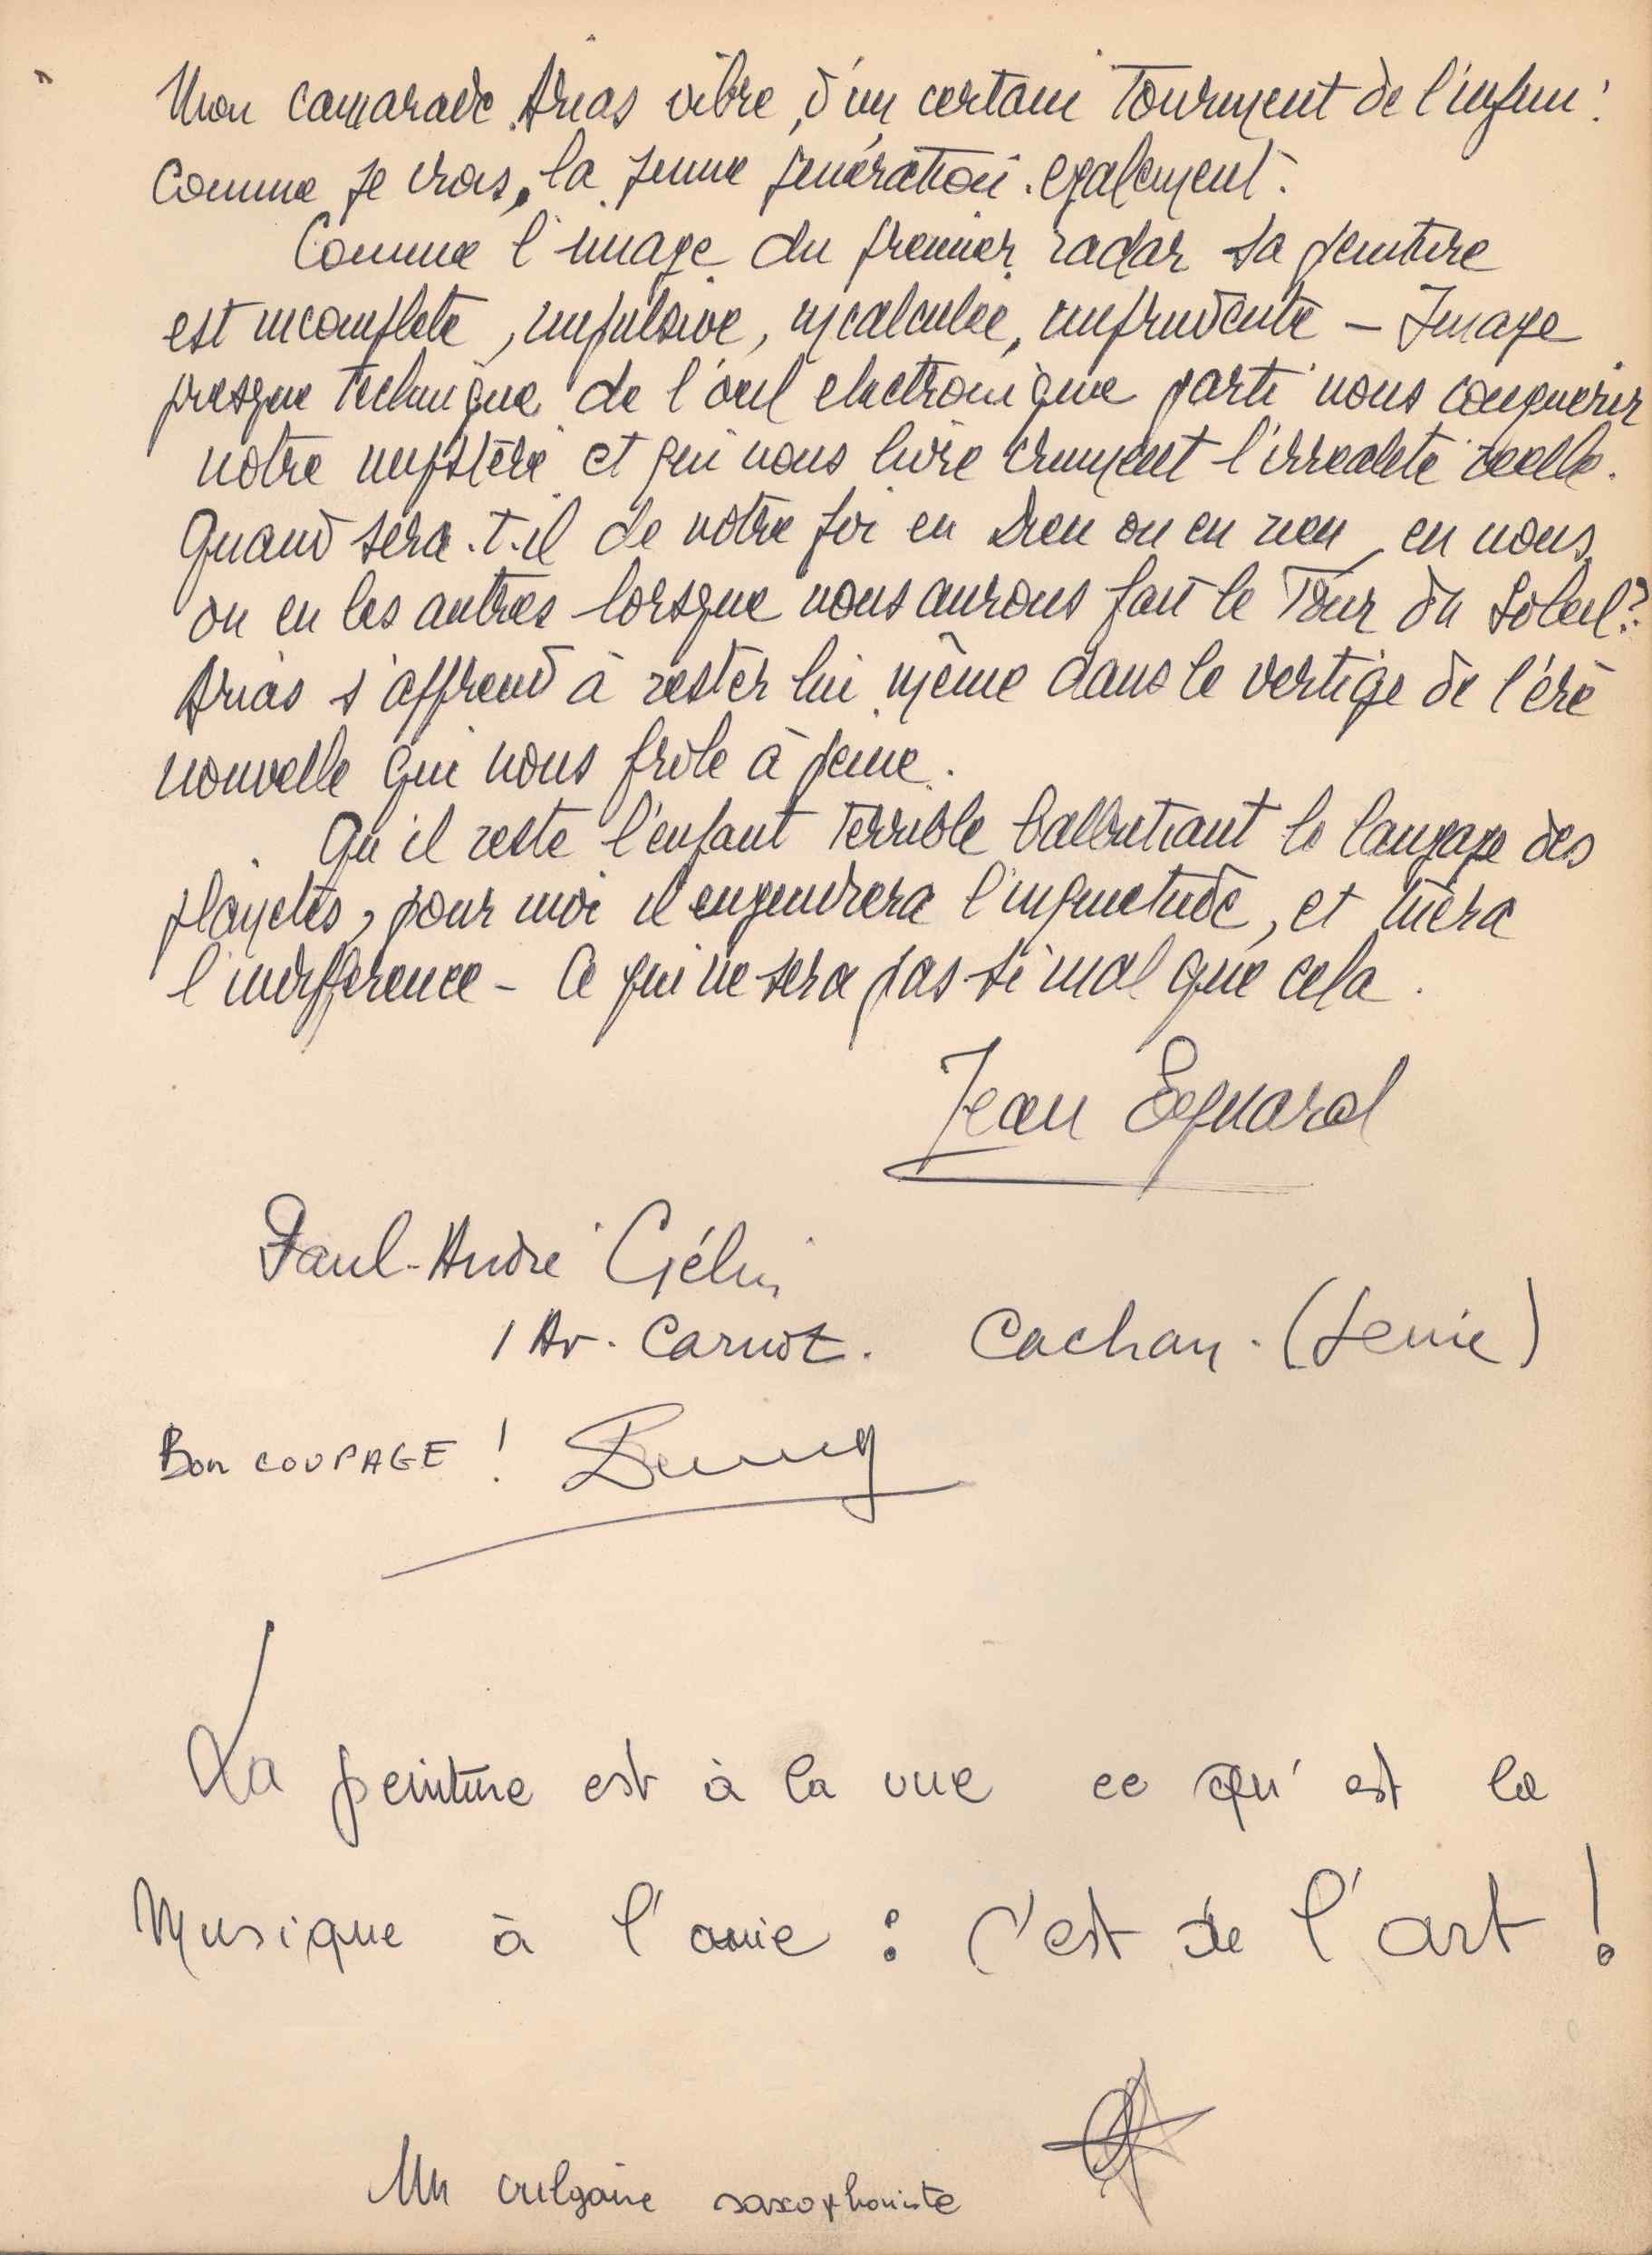 Mon camarade Arias vibre, d'un certain Tourment de l'infini !
Comme je crois, la jeune génération également.
Comme l'image du premier radar sa peinture
est incomplete, impulsive, incalculée, imprudente – Image
presque technique de l'oeil electronique parti nous conquerir
notre mystère et qui nous livre crument l'irrealité réelle.
Quand sera-t-il de notre foi en Dieu ou en rien, en nous
ou en les autres lorsque nous aurons fait le Tour du Soleil ?
Arias s'apprend à rester lui même dans le vertige de l'ère
nouvelle qui nous frôle à peine.
Qu'il reste l'enfant Terrible balbutiant le langage des
planetes, pour moi il engendrera l'inquietude, et tuera
l'indifference – Ce qui ne sera pas si mal que cela.
Jean
Paul-André Gélin
1 Av. Carnot. Cachan. (Seine)
Bon COUPAGE !
La peinture est à la vue ce qu'est la
Musique à l'ouie : c'est de l'art !
Un vulgaire saxophoniste